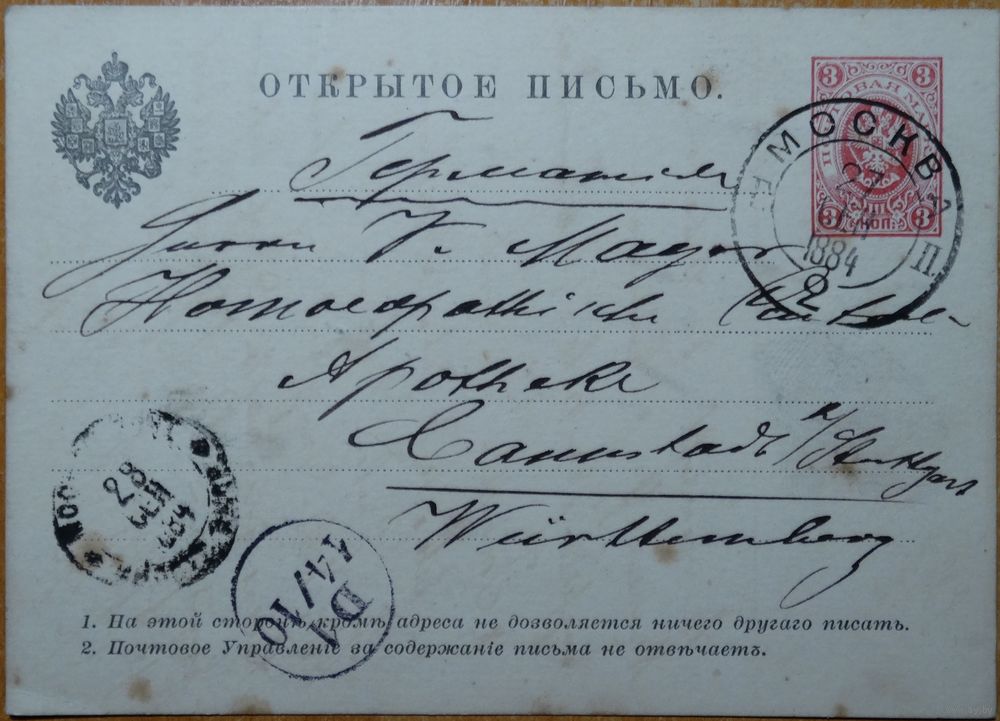 ОТКРЫТОЕ ПИСЬМО.
3 3
МОСКВА
1884
П.
3 КОП. 3
Германия
Herrn V. Mayer
Homoeopathische Central-
Apotheke
Cannstadt a/Stuttgart
Württemberg
28
СЕН
1884
D1
A4/10
1. На этой сторонѣ, кромѣ адреса не дозволяется ничего другаго писать.
2. Почтовое Управленіе за содержаніе письма не отвѣчаетъ.